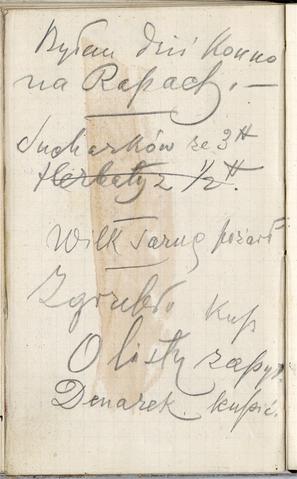 Byłam dziś Konno
na Rapach. —
Sucharków ze 3 ℔
Herbaty z 1/2 ℔.
Wilk sarnę pożarł
Zgrzebło kup
O listy zapyt.
Denarek kupić.